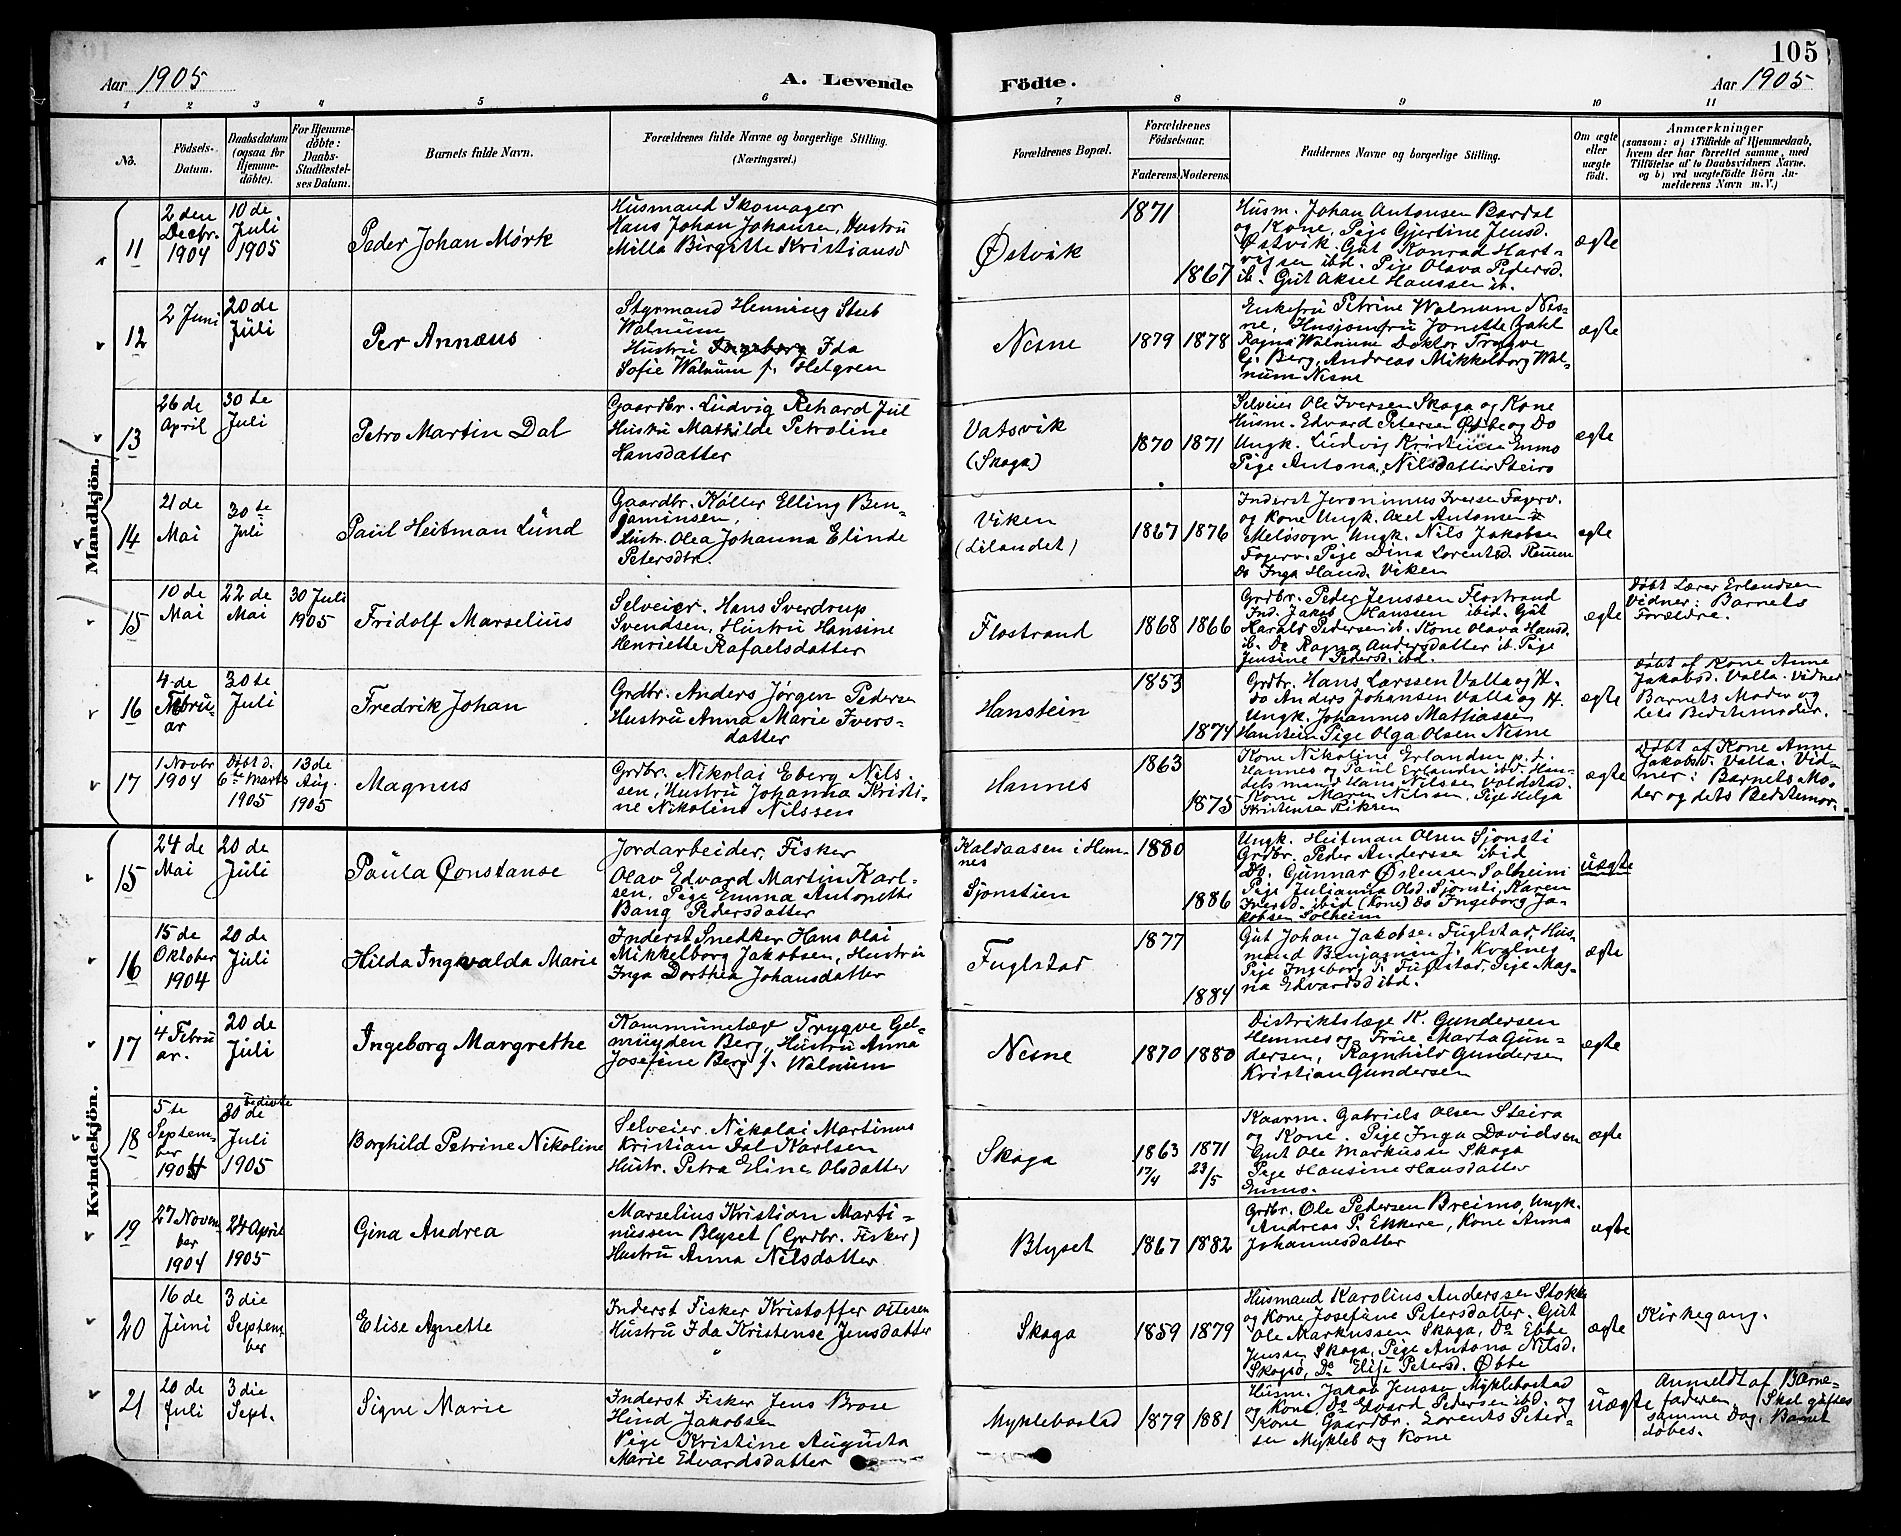 105
Aar 1905
A. Levende
Födte.
Aar 1905
1 2 3 4 5 6 7 8 9 10 11
No.
Födsels-
Datum.
Daabsdatum
(ogsaa for
Hjemme-
döbte).
For Hjemme-
döbte:
Daabs-
Stadfæstel-
ses Datum.
Barnets fulde Navn.
Forældrenes fulde Navne og borgerlige Stilling.
(Næringsvei.)
Forældrenes Bopæl.
Forældrenes
Födselsaar.
Faderens.
Moderens.
Faddernes Navne og borgerlige Stilling.
Om ægte
eller
uægte
födt.
Anmærkninger
(saasom: a) i Tilfælde af Hjemmedaab,
hvem der har forrettet samme, med
Tilföielse af to Daabsvidners Navne.
og b) ved uægtefödte Börn An-
melderens Navn m. V.)
Mandkjön.
11
2 den
Decbr.
1904
10 de
Juli
1905
Peder Johan Mørk
Husmand Skomager
Hans Johan Johansen, Hustru
Milla Birgitte Kristiansd
Østvik
1871
1867
Husm. Johan Antonsen Bardal
og Kone, Pige Gjertine Jensd.
Østvik. Gut Konrad Hart-
vigsen ibd. Pige Olava Pedersd.
ib. Gut Aksel Hanssen ib.
ægte
12
2 Juni
20 de
Juli
Per Annæus
Styrmand Henning Stub
Walnum
Hustru Ingeborg Ida
Sofie Walnum f. Helgren
Nesne
1879
1878
Enkefru Petrine Walnum Nes-
ne, Husjomfru Jonette Dahl
Ragna Walnum Doktor Trygve
G. Berg, Andreas Mikkelborg Wal-
num Nesne
ægte
13
26 de
April
30 te
Juli
Petro Martin Dal
Gaardbr. Ludvig Rehard Jul
Hustru Mathilde Petroline
Hansdatter
Vatsvik
(Skaga)
1870
1871
Selveier Ole Iversen Skaga og Kone
Husm. Edvard Petersen Øbbe og Do
Ungk. Ludvig Kristiansen Emmo
Pige Antona Nilsdatter Steiro
ægte
14
21 de
Mai
30 te
Juli
Paul Heitman Lund
Gaardbr. Køller Elling Ben-
jaminsen,
Hustr. Olea Johanna Elinde
Petersdtr.
Viken
(Lilandet)
1867
1876
Inderst Jeronimus Iversen Fagerv.
og Kone Ungk. Axel Antonsen
Meløsogn Ungk. Nils Jakobsen
Fagerv. Pige Dina Lorentsd.
Do Inga Hansd. Viken
ægte
15
10 de
Mai
22 de
Mai
30 Juli
1905
Fridolf Marselius
Selveier. Hans Sverdrup
Svendsen, Hustru Hansine
Henriette Rafaelsdatter
Flostrand
1868
1866
Grdbr. Peder Jenssen Flostrand
Ind. Jakob Hanssen ibid. Gut
Harald Pedersen ib. Kone Olava Hansd.
ib. Do Ragna Andersdatter ib. Pige
Jensine Pedersd. ibd.
ægte
Døbt Lærer Erlandsen
Vidner: Barnets
Forældre.
16
4 de
Febru-
ar
30 te
Juli
Fredrik Johan
Grdbr. Anders Jørgen Pedersen
Hustru Anna Marie Ivers-
datter
Hanstein
1853
1874
Grdbr. Hans Larssen Valla og H.
do Anders Johansen Valla og H.
Ungk. Johannes Mathiassen
Hanstein Pige Olga Olsen Nesne
ægte
Døbt af Kone Anne
Jakobsd. Valla. Vidner
Barnets Moder og
dets Bedstemoder.
17
1 Novbr
1904
Døbt d.
6te Marts
1905
13 de
Aug.
1905
Magnus
Grdbr. Nikolai Eberg Nils-
sen, Hustru Johanna Kristi-
ne Nikoline Nilssen
Hannes
1863
1875
Kone Nikoline Erlandsen
Hannes og Paul Erlandsen ibd. Han-
delsmand Hans Nilssen Voldstad.
Kone Maren Nilssen, Pige Helga
Kristensa Eriksen
ægte
Døbt af Kone Anne
Jakobsd. Valla. Vid-
ner: Barnets Mo-
der og dets Bedstemor.
Kvindekjön.
15
24 de
Mai
20 de
Juli
Paula Constanse
Jordarbeider, Fisker
Olav Edvard Martin Karl-
sen, Pige Emma Antonette
Bang Pedersdatter
Kaldaasen i Hem-
nes
Sjonstien
1880
1886
Ungk. Heitman Olsen Sjonsti
Grdbr. Peder Anderssen ibid
Do. Gunnar Østensen Solheim
Pige Julianna Olsd. Sjonsti, Karen
Iversd. ibid (Kone) Do Ingeborg Ja-
kobsen Solheim
uægte
16
15 de
Oktober
1904
20 de
Juli
Hilda Ingvalda Marie
Inderst Snedker Hans Olai
Mikkelborg Jakobsen, Hustru
Inga Dorthea Johansdatter
Fuglstad
1877
1884
Gut Johan Jakobsen Fuglstad, Hus-
mand Benjamin J. Kvalnes
Pige Ingeborg J. Fuglstad, Pige Mag-
na Edvardsd ibd.
ægte
17
4 Febru
ar.
20 de
Juli
Ingeborg Margrethe
Kommunelæge Trygve Gel-
muyden Berg, Hustru Anna
Josefine Berg f. Walnum
Nesne
1870
1880
Distriktslæge K. Gundersen
Hemnes og Frue, Marta Gun-
dersen, Ragnhild Gundersen
Kristian Gundersen
ægte
18
5 te
Septem-
ber
1904
30 de
Juli
1905
Borghild Petrine Nikoline
Selveier. Nikolai Martinus
Kristian Dal Karlsen
Hustr. Petra Eline Olsdatter
Skaga
1863
17/4
1871
23/5
Kaarm. Gabriels Olsen Steiro
og Kone. Pige Inga Davidsen
Gut Ole Markussen Skaga
Pige Hansine Hansdatter
Emmo.
ægte
19
27 Novem-
ber
1904
24 April
1905
Gina Andrea
Marselius Kristian Marti-
nussen Blyset (Grdbr. Fisker)
Hustru Anna Nilsdatter
Blyset
1867
1882
Grdbr. Ole Pedersen Breimo, Ungk.
Andreas P. Ekkere, Kone Anna
Johannesdatter
ægte
20
16 de
Juni
3 die
Septem-
ber
Elise Agnette
Inderst Fisker Kristoffer Ottesen
Hustru Ida Kristense Jensdatter
Skaga
1859
1879
Husmand Karolius Anderssen Stokke
og Kone Josefine Petersdatter. Gut
Ole Markussen Skaga, Do Ebbe
Jenssen Skaga, Pige Antona Nilsd.
Skogsø, Do Elise Petersd. Øbbe
ægte
Kirkegang.
21
20 de
Juli
3 die
Sept.
Signe Marie
Inderst Fisker Jens Brose
Hind Jakobsen
Pige Kristine Augusta
Marie Edvardsdatter
Myklebostad
1879
1881
Husm. Jakob Jenssen Myklebostad
og Kone Do Edvard Pedersen ibd. og
Kone Gaardbr. Lorents Peter-
sen Mykleb og Kone
uægte
Anmeldt af Barne-
faderen. Skal giftes
samme Dag. Barnet
døbes.